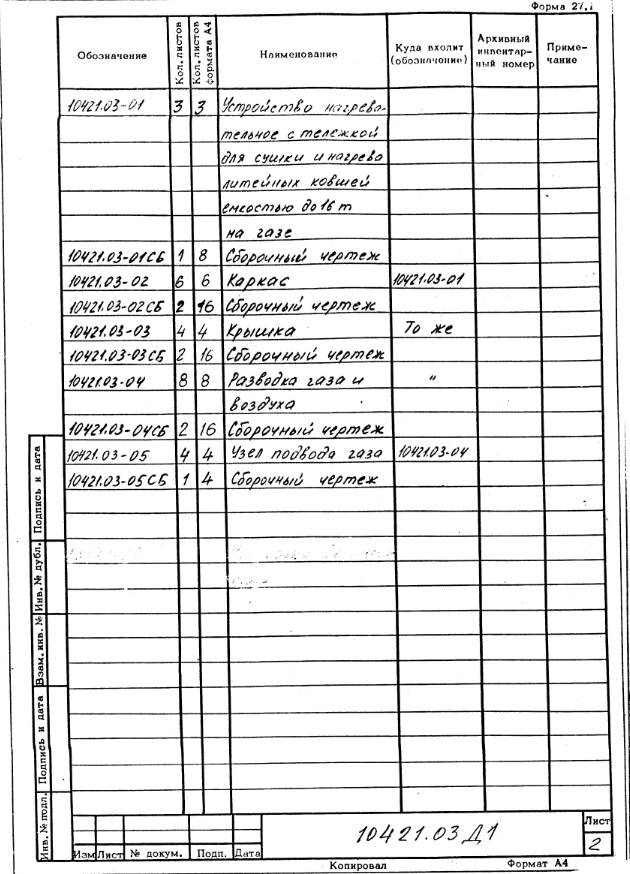 Форма 27.1
Обозначение
Кол. листов
Кол. листов формата А4
Наименование
Куда входит (обозначение)
Архивный инвентарный номер
Примечание
10421.03-01 3 3 Устройство нагрева-
тельное с тележкой
для сушки и нагрева
литейных ковшей
емкостью до 16 т
на газе
10421.03-01СБ 1 8 Сборочный чертеж
10421.03-02 6 6 Каркас 10421.03-01
10421.03-02СБ 2 16 Сборочный чертеж
10421.03-03 4 4 Крышка То же
10421.03-03СБ 2 16 Сборочный чертеж
10421.03-04 8 8 Разводка газа и "
воздуха
10421.03-04СБ 2 16 Сборочный чертеж
10421.03-05 4 4 Узел подвода газа 10421.03-04
10421.03-05СБ 1 4 Сборочный чертеж
Подпись и дата
Инв. № дубл.
Взам. инв. №
Подпись и дата
Инв. № подл.
Изм Лист № докум. Подп. Дата
10421.03 Д1
Лист
2
Копировал Формат А4